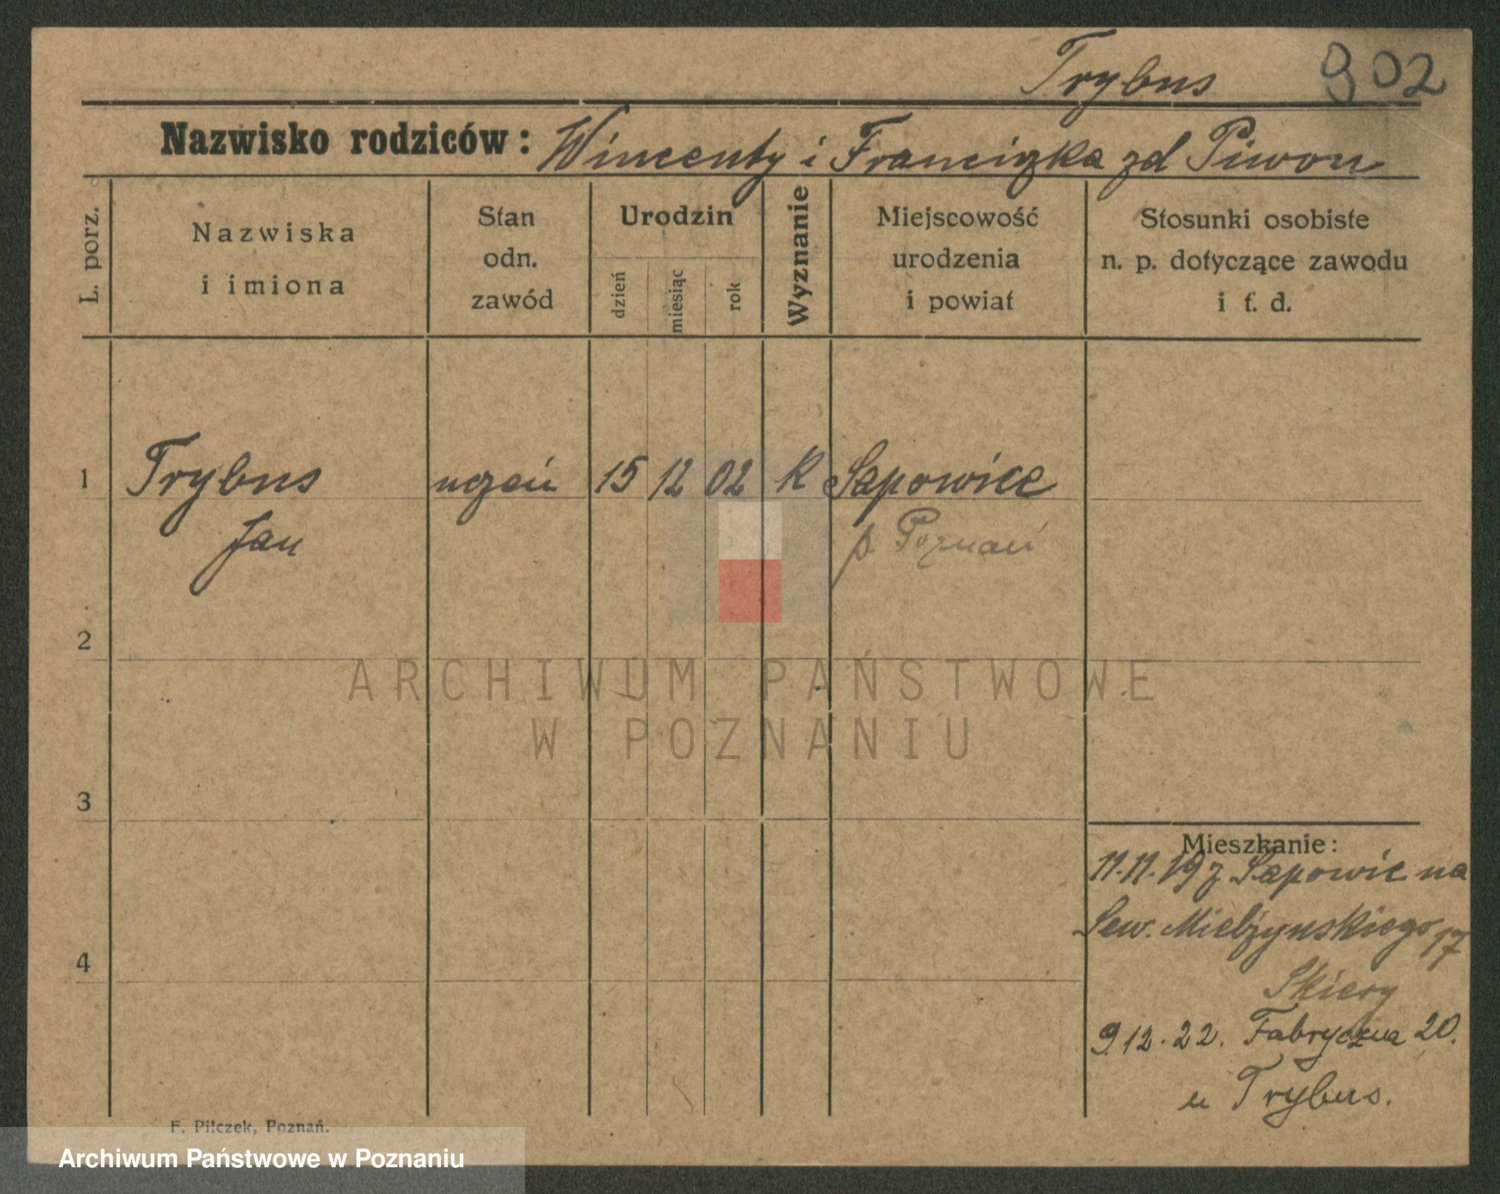 Trybus 902
Nazwisko rodziców: Wincenty i Franciszka zd Piwon
L. porz.
Nazwiska
i imiona
Stan
odn.
zawód
Urodzin
dzień
miesiąc
rok
Wyznanie
Miejscowość
urodzenia
i powiat
Stosunki osobiste
n. p. dotyczące zawodu
i t. d.
1 Trybus uczeń 15 12 02 k Sapowice
Jan p. Poznań
2
ARCHIWUM PAŃSTWOWE
W POZNANIU
3
Mieszkanie:
11.11.19 z Sapowic na
Sew. Mielżynskiego 17
4
Skiery
9.12.22. Fabryczna 20.
u Trybus.
F. Pilczek, Poznań.
Archiwum Państwowe w Poznaniu